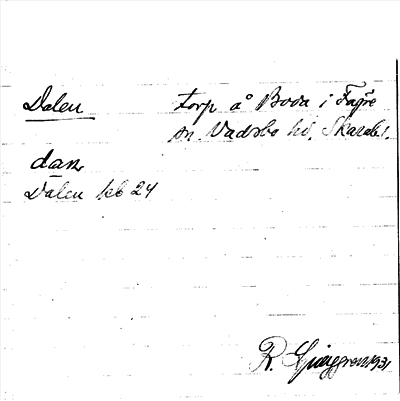 Dalen
torp å Boda i Fägre
sn. Vadsbo hd, Skarab. l.
dan
Dalen kb 24
R. Ljunggren 1931